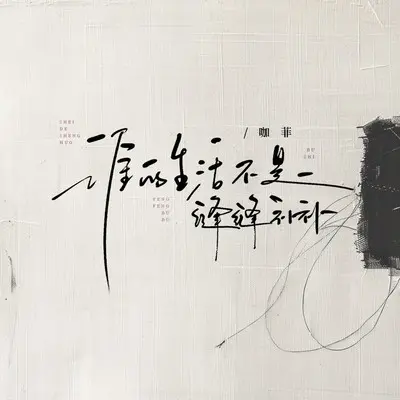 SHEI
DE
SHENG
HUO
/ 咖菲
BU
SHI
谁的生活不是
缝缝补补
FENG
FENG
BU
BU